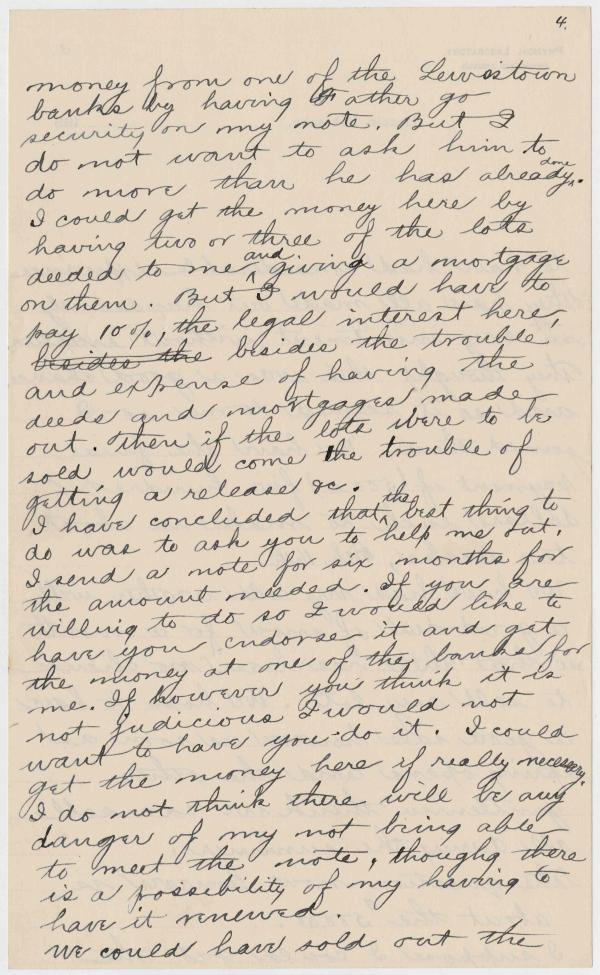 4.
money from one of the Lewistown
banks by having Father go
security on my note. But I
do not want to ask him to
do more than he has already done.
I could get the money here by
having two or three of the lots
deeded to me and giving a mortgage
on them. But I would have to
pay 10%, the legal interest here,
besides the besides the trouble
and expense of having the
deeds and mortgages made
out. Then if the lots were to be
sold would come the trouble of
getting a release &c.
I have concluded that the best thing to
do was to ask you to help me out.
I send a note for six months for
the amount needed. If you are
willing to do so I would like to
have you endorse it and get
the money at one of the banks for
me. If however you think it is
not judicious I would not
want to have you do it. I could
get the money here if really necessary.
I do not think there will be any
danger of my not being able
to meet the note, thoughg there
is a possibility of my having to
have it renewed.
We could have sold out the